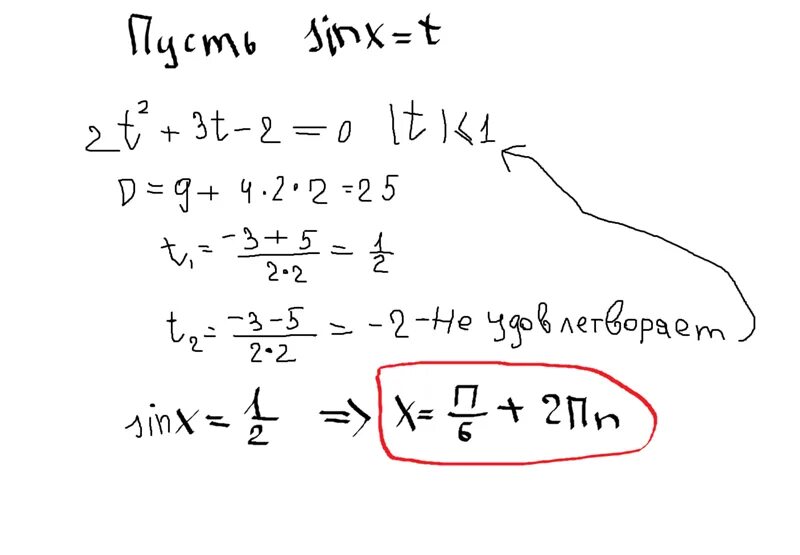 Пусть sinx=t
2t²+3t-2=0 |t|⩽1
D=9+4·2·2=25
t₁=\frac{-3+5}{2·2}=\frac{1}{2}
t₂=\frac{-3-5}{2·2}=-2-Не удовлетворяет
sinx=\frac{1}{2} ⇒ x=\frac{П}{6}+2Пn